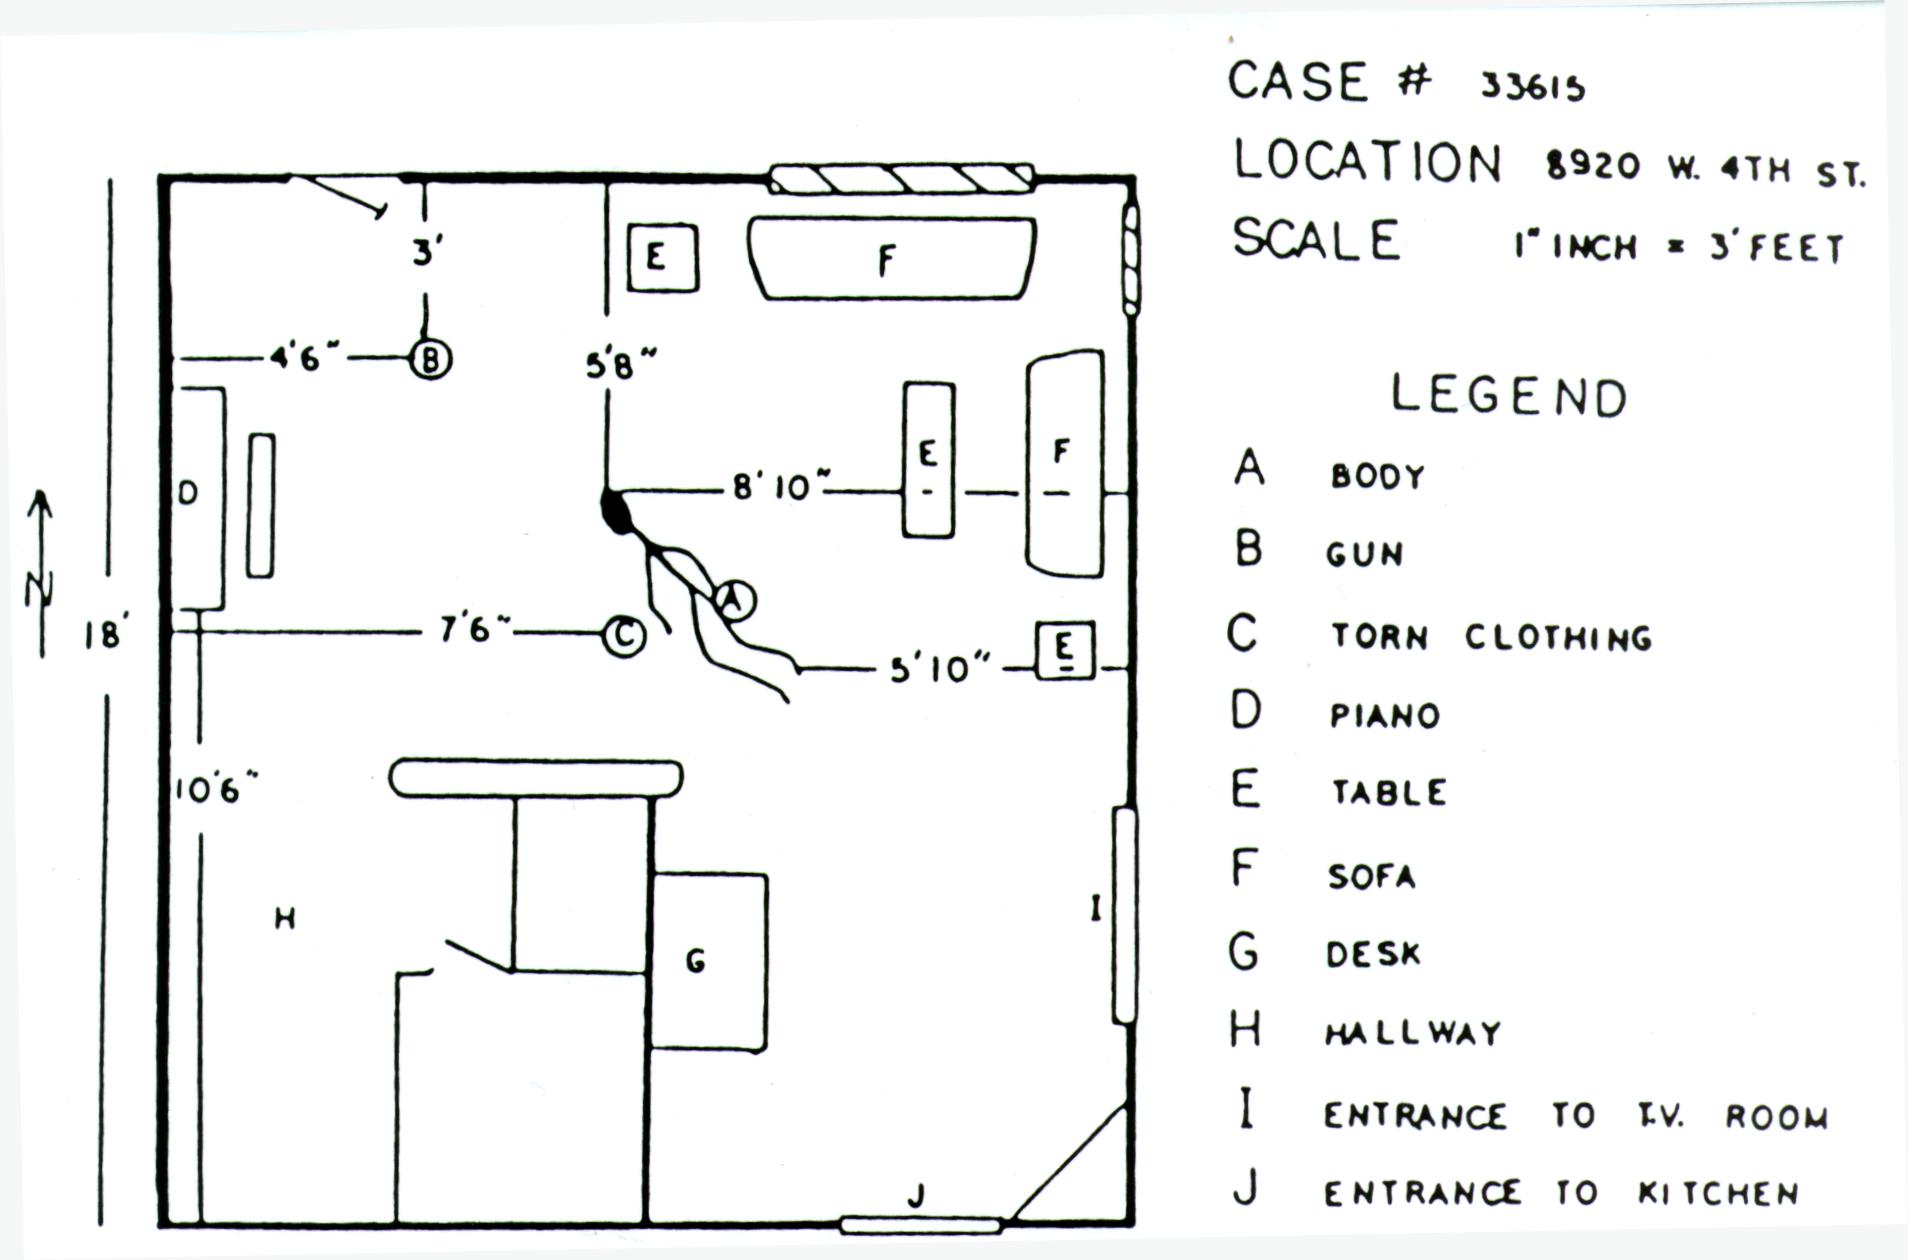 CASE # 33615
LOCATION 8920 W. 4TH ST.
SCALE 1" INCH = 3' FEET
LEGEND
A BODY
B GUN
C TORN CLOTHING
D PIANO
E TABLE
F SOFA
G DESK
H HALLWAY
I ENTRANCE TO T.V. ROOM
J ENTRANCE TO KITCHEN
3'
E
F
4'6"
B
5'8"
D
8'10"
E
F
N
18'
7'6"
C
A
5'10"
E
10'6"
H
G
I
J